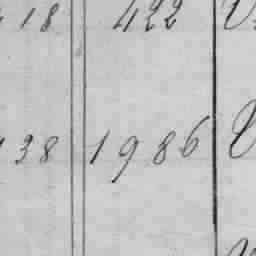 18 422
38 1986